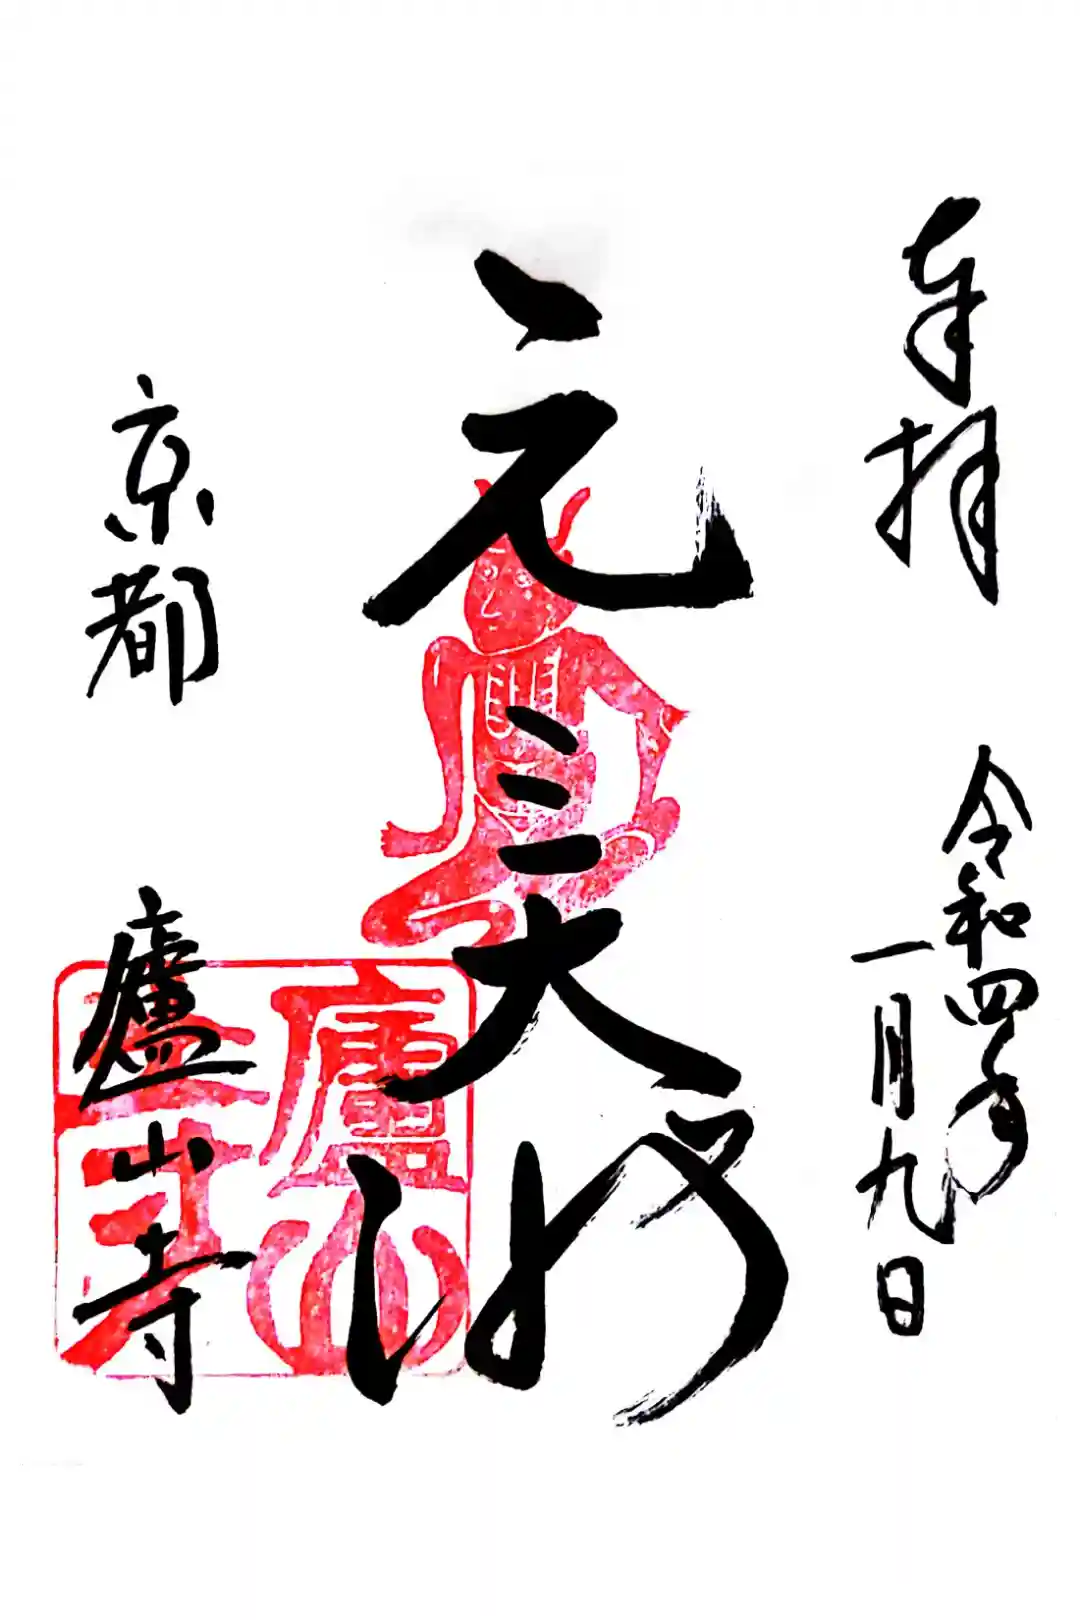 奉拝
令和四年
一月九日
元三大師
京都
廬山寺
廬山
寺